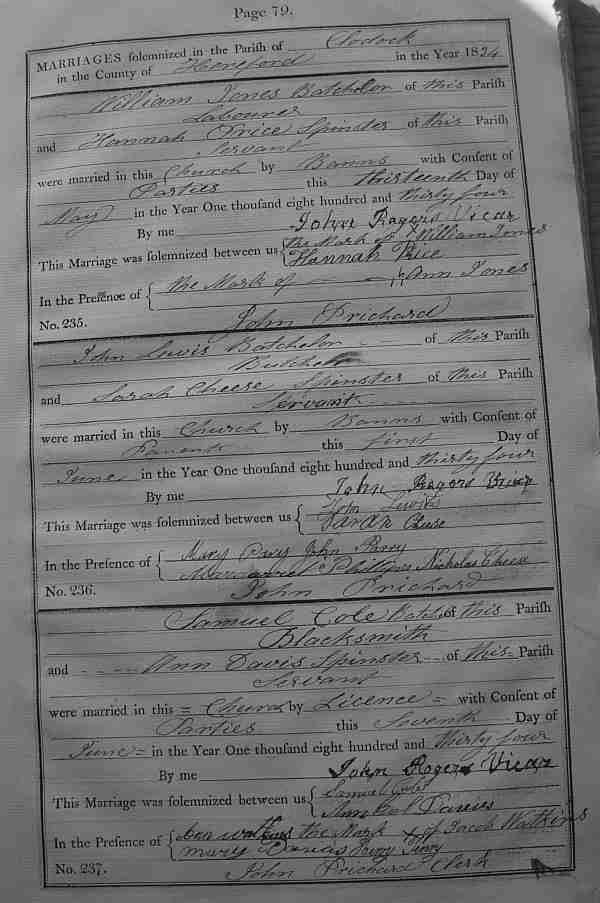 Page 79.
MARRIAGES solemnized in the Parish of Clodock
in the County of Hereford in the Year 1834
William Jones Batchelor of this Parish
Labourer
and Hannah Price Spinster of this Parish
Servant
were married in this Church by Banns with Consent of
Parties this thirteenth Day of
May in the Year One thousand eight hundred and thirty four
By me John Rogers Vicar
This Marriage was solemnized between us { the Mark of X William Jones
Hannah Price
In the Presence of { the Mark of Ann Jones
No. 235. John Prichard
John Lewis Batchelor of this Parish
Butcher
and Sarah Cheese Spinster of this Parish
Servant
were married in this Church by Banns with Consent of
Parents this first Day of
June in the Year One thousand eight hundred and thirty four
By me John Rogers Vicar
This Marriage was solemnized between us { John Lewis
Sarah Cheese
In the Presence of { Mary John Parry
Phillips Nicholas Cheese
No. 236. John Prichard
Samuel Cole Batch. of this Parish
Blacksmith
and Ann Davis Spinster of this Parish
Servant
were married in this = Church by Licence = with Consent of
Parties this Seventh Day of
June = in the Year One thousand eight hundred and thirty four
By me John Rogers Vicar
This Marriage was solemnized between us { Samuel
Davies
In the Presence of { the Mark X of Jacob Watkins
Mary
No. 237. John Prichard Clerk